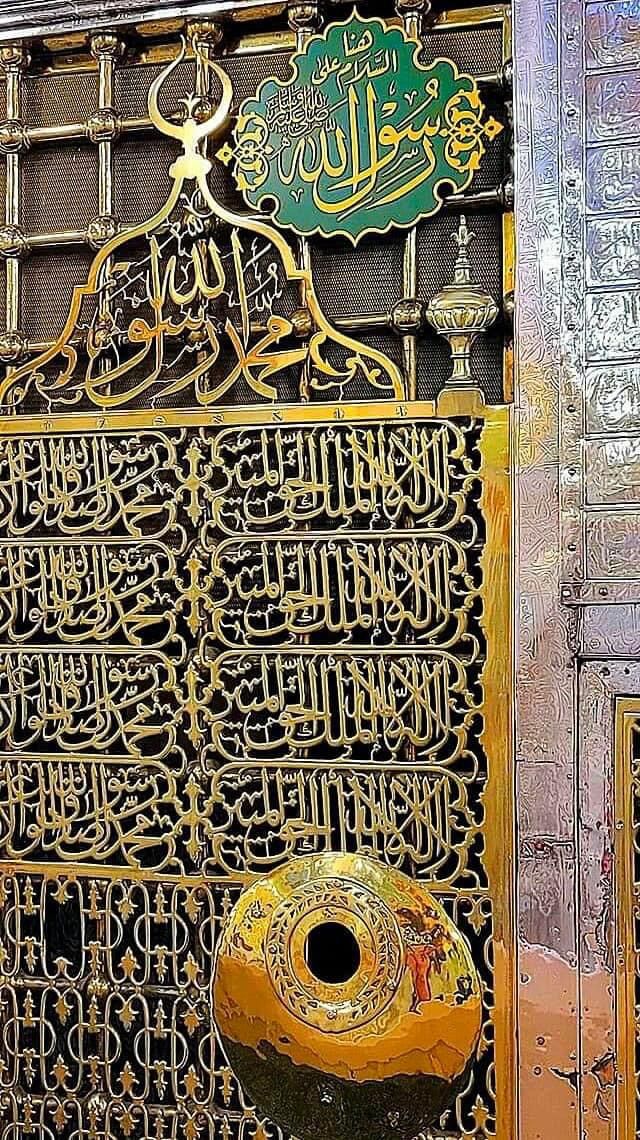 هنا
السلام على
رسول الله
صلى الله عليه وسلم
محمد رسول الله
لا إله إلا الله الملك الحق المبين محمد رسول الله الصادق الوعد
لا إله إلا الله الملك الحق المبين محمد رسول الله الصادق الوعد
لا إله إلا الله الملك الحق المبين محمد رسول الله الصادق الوعد
لا إله إلا الله الملك الحق المبين محمد رسول الله الصادق الوعد